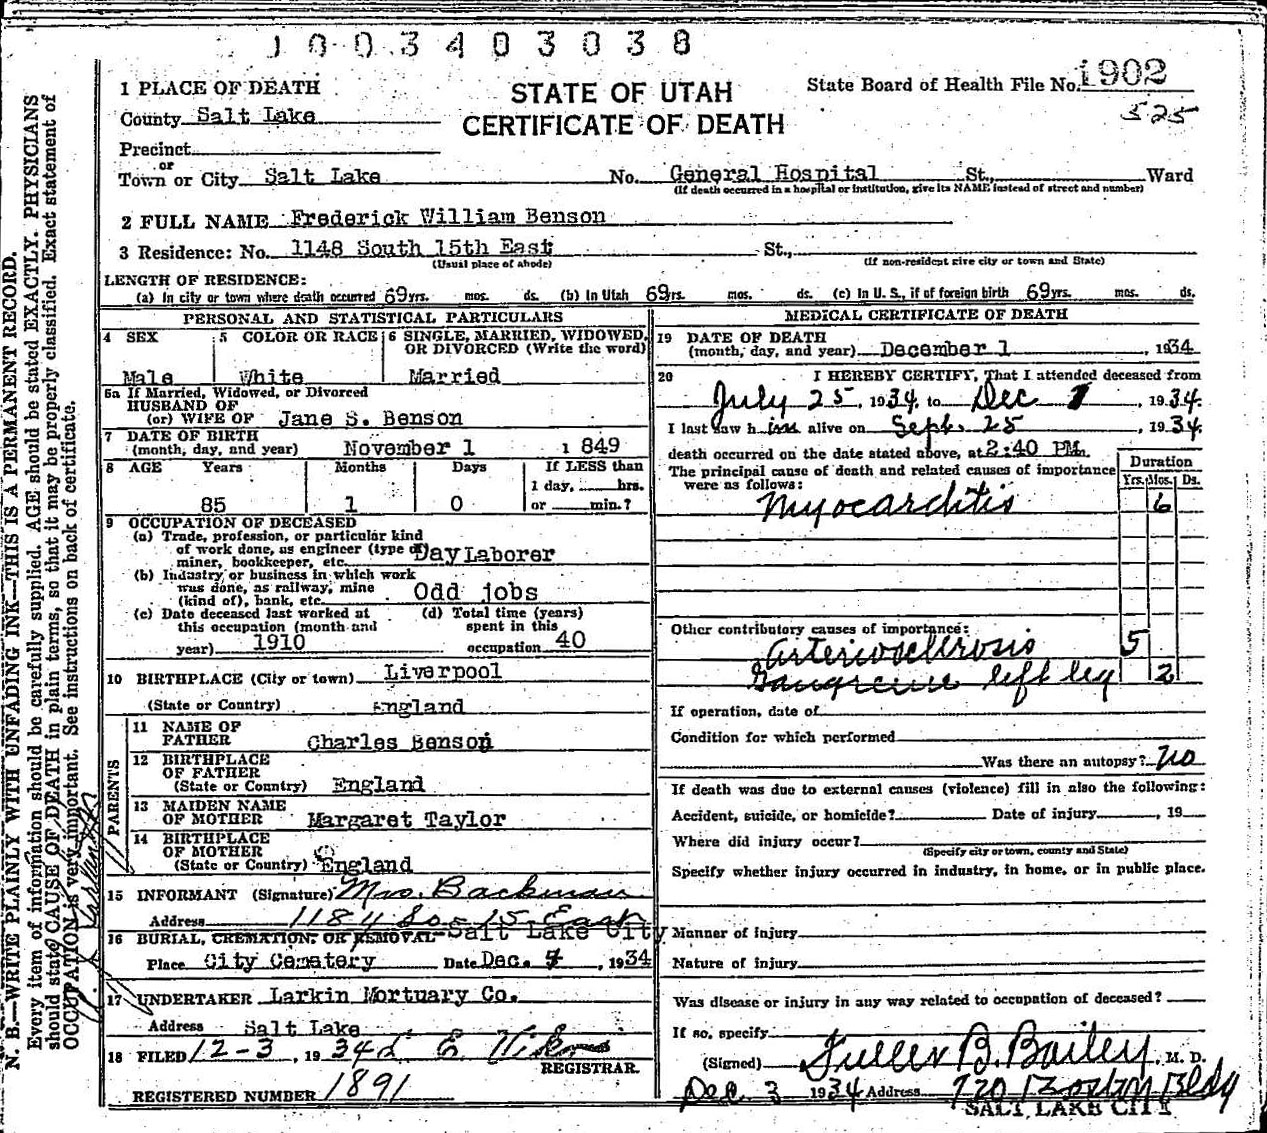 1003403038
1 PLACE OF DEATH
STATE OF UTAH
CERTIFICATE OF DEATH
State Board of Health File No. 1902
525
County Salt Lake
Precinct
or
Town or City Salt Lake No. General Hospital St., Ward
(If death occurred in a hospital or institution, give its NAME instead of street and number)
2 FULL NAME Frederick William Benson
3 Residence: No. 1148 South 15th East St.,
(Usual place of abode) (If non-resident give city or town and State)
LENGTH OF RESIDENCE:
(a) In city or town where death occurred 69yrs. mos. ds. (b) In Utah 69yrs. mos. ds. (c) In U. S., if of foreign birth 69yrs. mos. ds.
PERSONAL AND STATISTICAL PARTICULARS
4 SEX 5 COLOR OR RACE 6 SINGLE, MARRIED, WIDOWED, OR DIVORCED (Write the word)
Male White Married
6a If Married, Widowed, or Divorced
HUSBAND OF
(or) WIFE OF Jane S. Benson
7 DATE OF BIRTH
(month, day, and year) November 1 1849
8 AGE Years Months Days If LESS than
1 day, hrs.
85 1 0 or min.?
9 OCCUPATION OF DECEASED
(a) Trade, profession, or particular kind
of work done, as engineer (type of Day Laborer
miner, bookkeeper, etc.
(b) Industry or business in which work
was done, as railway, mine Odd jobs
(kind of), bank, etc.
(c) Date deceased last worked at (d) Total time (years)
this occupation (month and spent in this
year) 1910 occupation 40
10 BIRTHPLACE (City or town) Liverpool
(State or Country) England
PARENTS
11 NAME OF
FATHER Charles Benson
12 BIRTHPLACE
OF FATHER
(State or Country) England
13 MAIDEN NAME
OF MOTHER Margaret Taylor
14 BIRTHPLACE
OF MOTHER
(State or Country) England
15 INFORMANT (Signature) Mrs. Backman
Address 1184 So - 15 East
16 BURIAL, CREMATION, OR REMOVAL Salt Lake City
Place City Cemetery Date Dec. 4, 1934
17 UNDERTAKER Larkin Mortuary Co.
Address Salt Lake
18 FILED 12-3, 1934
REGISTRAR.
REGISTERED NUMBER 1891
MEDICAL CERTIFICATE OF DEATH
19 DATE OF DEATH
(month, day, and year) December 1, 1934
20 I HEREBY CERTIFY, That I attended deceased from
July 25, 1934, to Dec 1, 1934.
I last saw him alive on Sept. 25, 1934.
death occurred on the date stated above, at 2:40 PM.
The principal cause of death and related causes of importance
were as follows:
Duration
Yrs. Mos. Ds.
Myocarditis 6
Other contributory causes of importance:
Arteriosclerosis 5
Gangrene left leg 2
If operation, date of
Condition for which performed
Was there an autopsy? no
If death was due to external causes (violence) fill in also the following:
Accident, suicide, or homicide? Date of injury, 19
Where did injury occur?
(Specify city or town, county and State)
Specify whether injury occurred in industry, in home, or in public place.
Manner of injury
Nature of injury
Was disease or injury in any way related to occupation of deceased?
If so, specify
(Signed) Fuller B. Bailey, M. D.
Dec. 3 1934 Address 720 Boston Bldg
SALT LAKE CITY
N. B.—WRITE PLAINLY WITH UNFADING INK—THIS IS A PERMANENT RECORD.
Every item of information should be carefully supplied. AGE should be stated EXACTLY. PHYSICIANS
should state CAUSE OF DEATH in plain terms, so that it may be properly classified. Exact statement of
OCCUPATION is very important. See instructions on back of certificate.